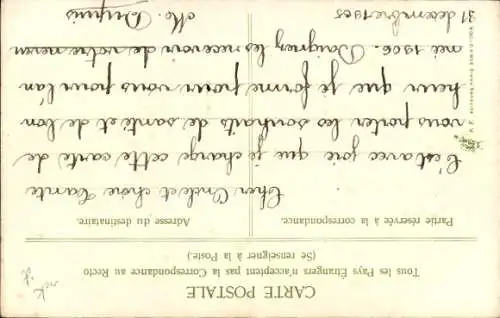 CARTE POSTALE
Tous les Pays Étrangers n'acceptent pas la Correspondance au Recto
(Se renseigner à la Poste.)
Partie réservée à la correspondance.
Adresse du destinataire.
Cher Oncle et chère Tante
C'est avec joie que je charge cette carte de
vous porter les souhaits de santé et de bon
heur que je forme pour vous pour l'an
née 1906. Daignez les recevoir de votre neveu
31 décembre 1905
M. Dupuis